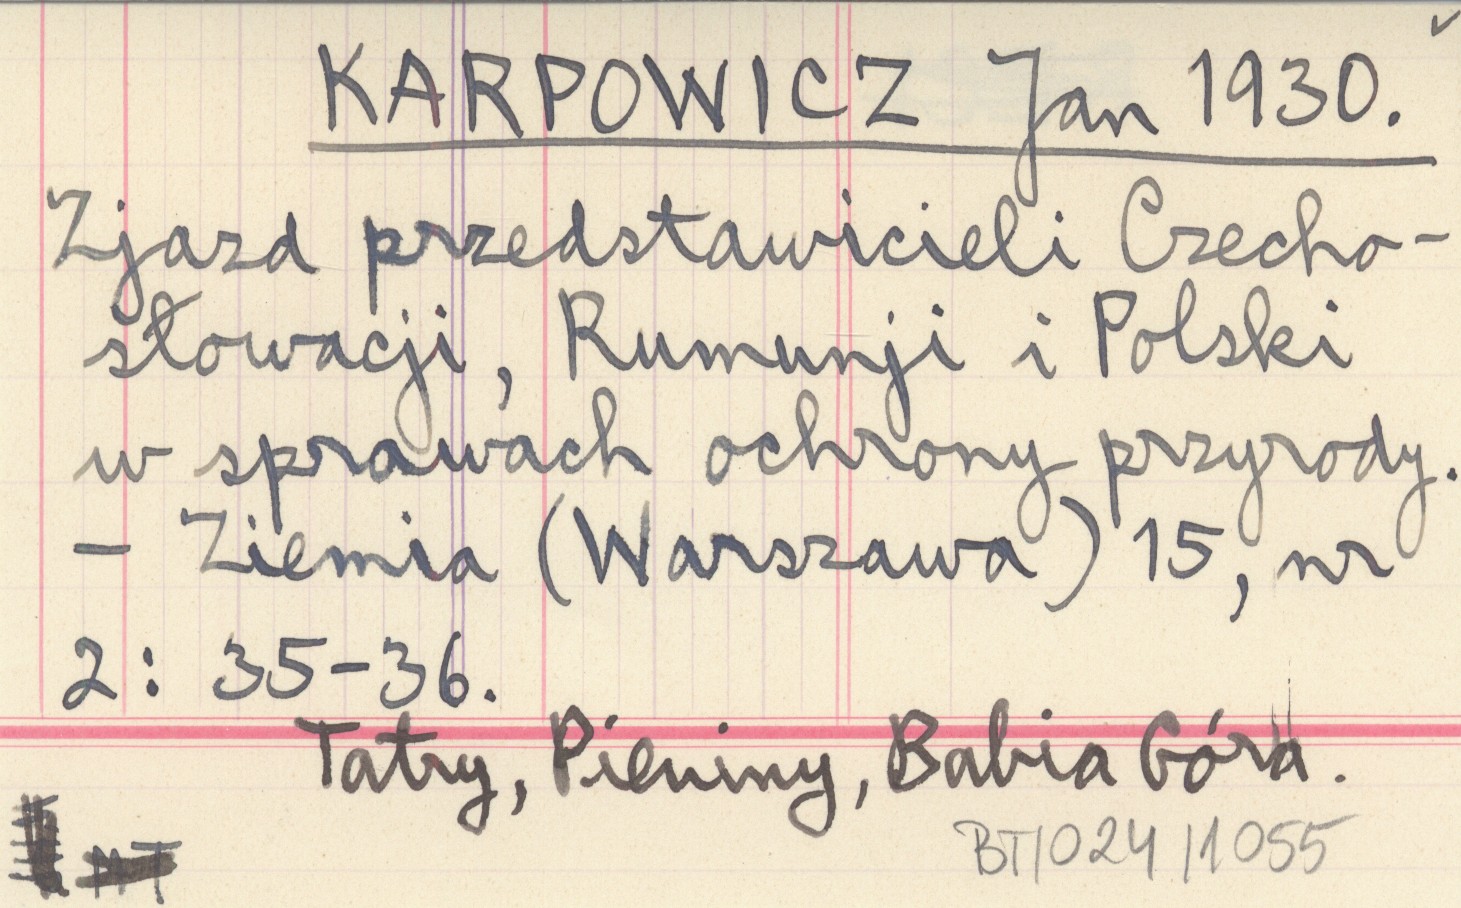 KARPOWICZ Jan 1930.
Zjazd przedstawicieli Czecho-
słowacji, Rumunji i Polski
w sprawach ochrony przyrody.
- Ziemia (Warszawa) 15, nr
2: 35-36.
Tatry, Pieniny, Babia Góra.
BT/024/1055